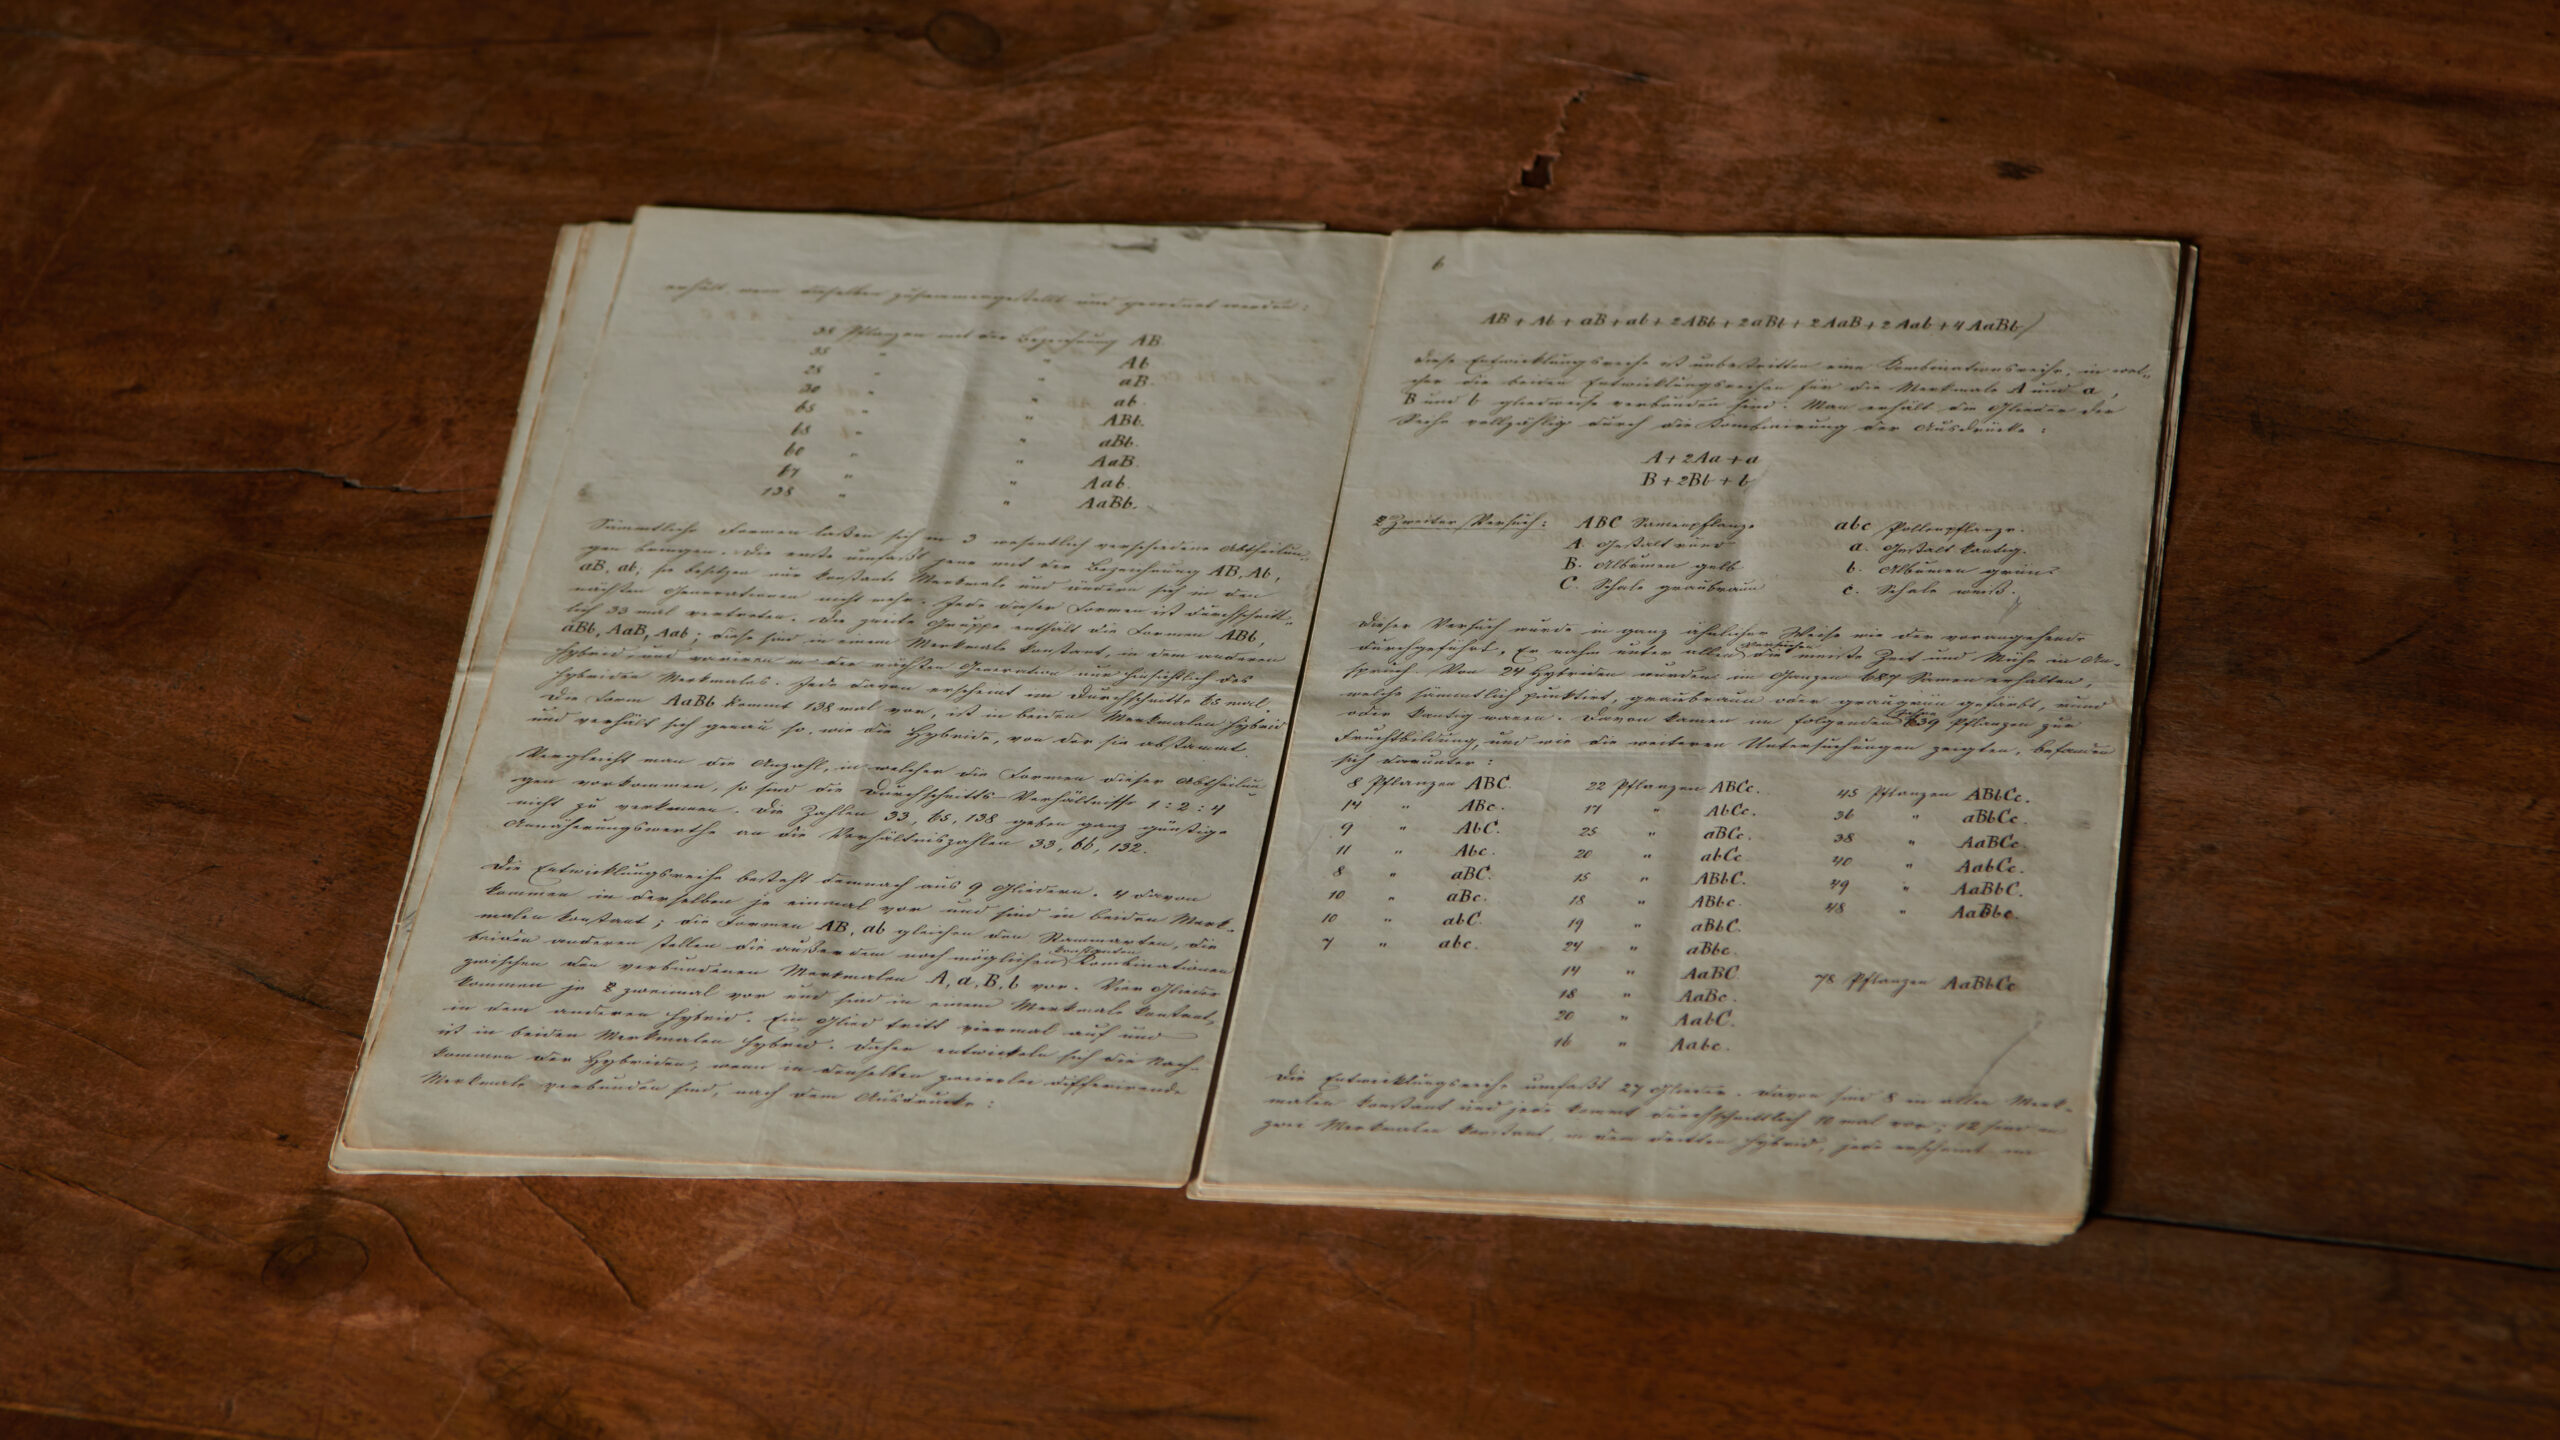 erhält, wenn dieselben zusammengestellt und geordnet werden:
38 Pflanzen mit der Bezeichnung AB
35 " " Ab
28 " " aB.
30 " " ab.
65 " " ABb.
68 " " aBb.
60 " " AaB.
67 " " Aab.
138 " " AaBb.
Sämmtliche Formen laßen sich in 3 wesentlich verschiedene Abtheilun-
gen bringen. Die erste umfaßt jene mit der Bezeichnung AB, Ab,
aB, ab; sie besitzen nur konstante Merkmale und ändern sich in den
nächsten Generationen nicht mehr. Jede dieser Formen ist durchschnitt-
lich 33 mal vertreten. Die zweite Gruppe enthält die Formen ABb,
aBb, AaB, Aab; diese sind in einem Merkmale konstant, in dem anderen
hybrid, und variren in der nächsten Generation nur hinsichtlich des
hybriden Merkmales. Jede davon erscheint im Durchschnitte 65 mal.
Die Form AaBb kommt 138 mal vor, ist in beiden Merkmalen hybrid
und verhält sich genau so, wie die Hybride, von der sie abstammt.
Vergleicht man die Anzahl, in welcher die Formen dieser Abtheilun
gen vorkommen, so sind die Durchschnitts-Verhältnisse 1:2:4
nicht zu verkennen. Die Zahlen 33, 65, 138 geben ganz günstige
Annäherungswerthe an die Verhältniszahlen 33, 66, 132.
Die Entwicklungsreihe besteht demnach aus 9 Gliedern. 4 davon
kommen in derselben je einmal vor und sind in beiden Merk-
malen konstant; die Formen AB, ab gleichen den Stammarten, die
beiden anderen stellen die außerdem noch möglichen konstanten Kombinationen
zwischen den verbundenen Merkmalen A, a, B, b vor. Vier Glieder
kommen je zweimal vor und sind in einem Merkmale konstant,
in dem anderen hybrid. Ein Glied tritt viermal auf und
ist in beiden Merkmalen hybrid. Daher entwickeln sich die Nach-
kommen der Hybriden, wenn in denselben zweierlei differirende
Merkmale verbunden sind, nach dem Ausdrucke:
6
AB + Ab + aB + ab + 2ABb + 2aBb + 2AaB + 2Aab + 4AaBb
Diese Entwicklungsreihe ist unbestritten eine Kombinationsreihe, in wel-
cher die beiden Entwicklungsreihen für die Merkmale A und a,
B und b gliedweise verbunden sind. Man erhält die Glieder der
Reihe vollzählig durch die Kombinirung der Ausdrücke:
A + 2Aa + a
B + 2Bb + b
2. Zweiter Versuch: ABC Samenpflanze abc Pollenpflanze.
A. Gestalt rund a. Gestalt kantig.
B. Albumen gelb b. Albumen grün.
C. Schale graubraun c. Schale weiß.
Dieser Versuch wurde in ganz ähnlicher Weise wie der vorangehende
durchgeführt. Er nahm unter allen Versuchen die meiste Zeit und Mühe in An-
spruch. Von 24 Hybriden wurden im Ganzen 687 Samen erhalten,
welche sämmtlich punktirt, graubraun oder graugrün gefärbt, rund
oder kantig waren. Davon kamen im folgenden Jahre 639 Pflanzen zur
Fruchtbildung, und wie die weiteren Untersuchungen zeigten, befanden
sich darunter:
8 Pflanzen ABC. 22 Pflanzen ABCc. 45 Pflanzen ABbCc.
14 " ABc. 17 " AbCc. 36 " aBbCc.
9 " AbC. 25 " aBCc. 38 " AaBCc.
11 " Abc. 20 " abCc. 40 " AabCc.
8 " aBC. 15 " ABbC. 49 " AaBbC.
10 " aBc. 18 " ABbc. 48 " AaBbc.
10 " abC. 19 " aBbC.
7 " abc. 24 " aBbc.
14 " AaBC. 78 Pflanzen AaBbCc
18 " AaBc.
20 " AabC.
16 " Aabc.
Die Entwicklungsreihe umfaßt 27 Glieder. Davon sind 8 in allen Merk-
malen konstant und jede kommt durchschnittlich 10 mal vor; 12 sind in
zwei Merkmalen konstant, in dem dritten hybrid, jede erscheint im